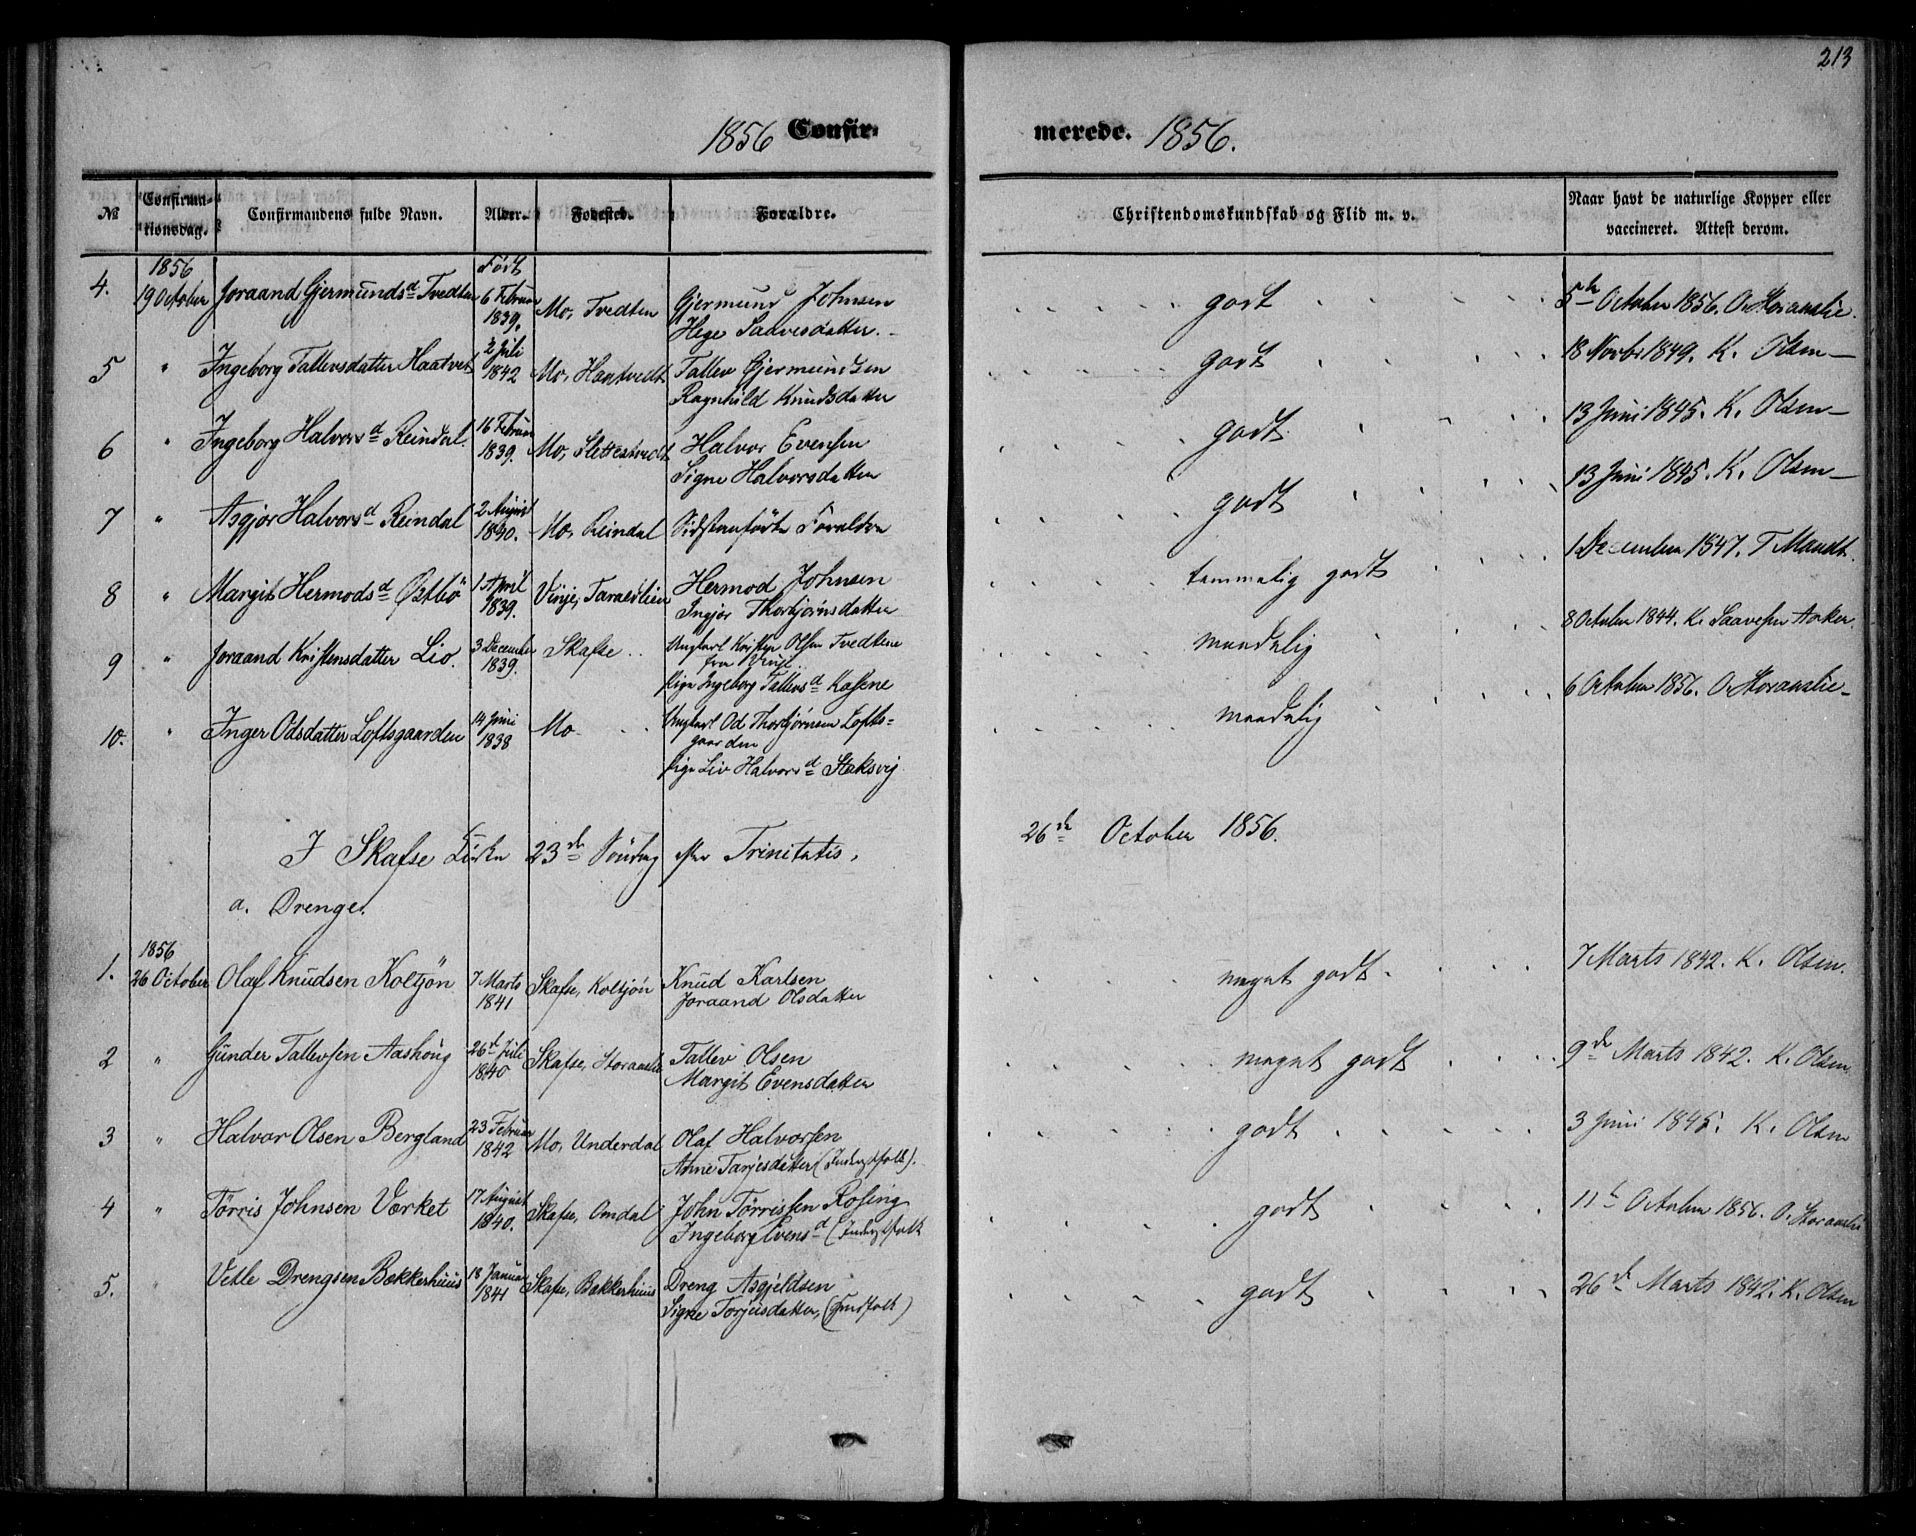 213
1856 Confir-
merede. 1856.
№ Confirmationsdag. Confirmandens fulde Navn. Alder. Fødested. Forældre. Christendomskundskab og Flid m. v. Naar havt de naturlige Kopper eller vaccineret. Attest derom.
4. 1856 19 October Joraand Gjermundsd Tvedten Født 6 Februar 1839. Mo, Tvedten Gjermund Johnsen
Hege Saavesdatter. godt 5te October 1856. O. Storaaslie.
5 " Ingeborg Tallevsdatter Haatvet 2 Juli 1842 Mo, Haatvedt Tallev Gjermundsen
Ragnhild Knudsdatter godt 18 Novbr 1849. K. Olsen
6 " Ingeborg Halvorsd Reindal. 16 Februar 1839. Mo, Slettestvedt Halvor Evensen
Signe Halvorsdatter godt 13 Juni 1845. K. Olsen
7 " Asgjør Halvorsd Reindal 2 August 1840. Mo, Reindal Sidstanførte Forældre godt 13 Juni 1845. K. Olsen
8 " Margit Hermodsd Østbø 1 April 1839. Vinje, Hermod Johnsen
Ingjør Thorbjørnsdatter temmelig godt 1 December 1847. T Mandt.
9 " Joraand Kristensdatter Lio. 3 December 1839. Skafse Ungkarl Kristen Olsen Tvedtene
fra Vinje
Pige Ingeborg Tallevsd Kasene maadelig 8 October 1844. K. Saavesen Aaker.
10. " Inger Odsdatter Loftsgaarden 14 Juni 1838 Mo Ungkarl Od Thorbjørnsen Lofts-
gaarden
Pige Liv Halvorsd Stæksvig maadelig 6 October 1856. O. Storaaslie
I Skafse Kirke 23de Søndag efter Trinitatis, 26de October 1856.
a. Drenge.
1. 1856 26 October Olaf Knudsen Koltjøn 7 Marts 1841 Skafse, Koltjøn Knud Karlsen
Joraand Olsdatter meget godt 7 Marts 1842. K. Olsen.
2 " Gunder Tallevsen Aashoug 26d Juli 1840 Skafse, Storaaslie Tallev Olsen
Margit Evensdatter meget godt 9de Marts 1842. K. Olsen
3 " Halvor Olsen Bergland 23 Februar 1842 Mo, Underdal Olaf Halvorsen
Anne Tarjesdatter (Inderstfolk). godt 3 Juni 1845. K. Olsen
4 " Tørris Johnsen Værket 17 August 1840. Skafse, Omdal John Tørrissen Rosing
Ingeborg Evensd (Inderstfolk godt 11te October 1856. O. Storaaslie
5. " Vetle Drengsen Bækkerhuus 18 Januar 1841 Skafse, Bækkerhuus Dreng Asgjeldsen
Signe Torjeisdatter, godt 26de Marts 1842. K. Olsen